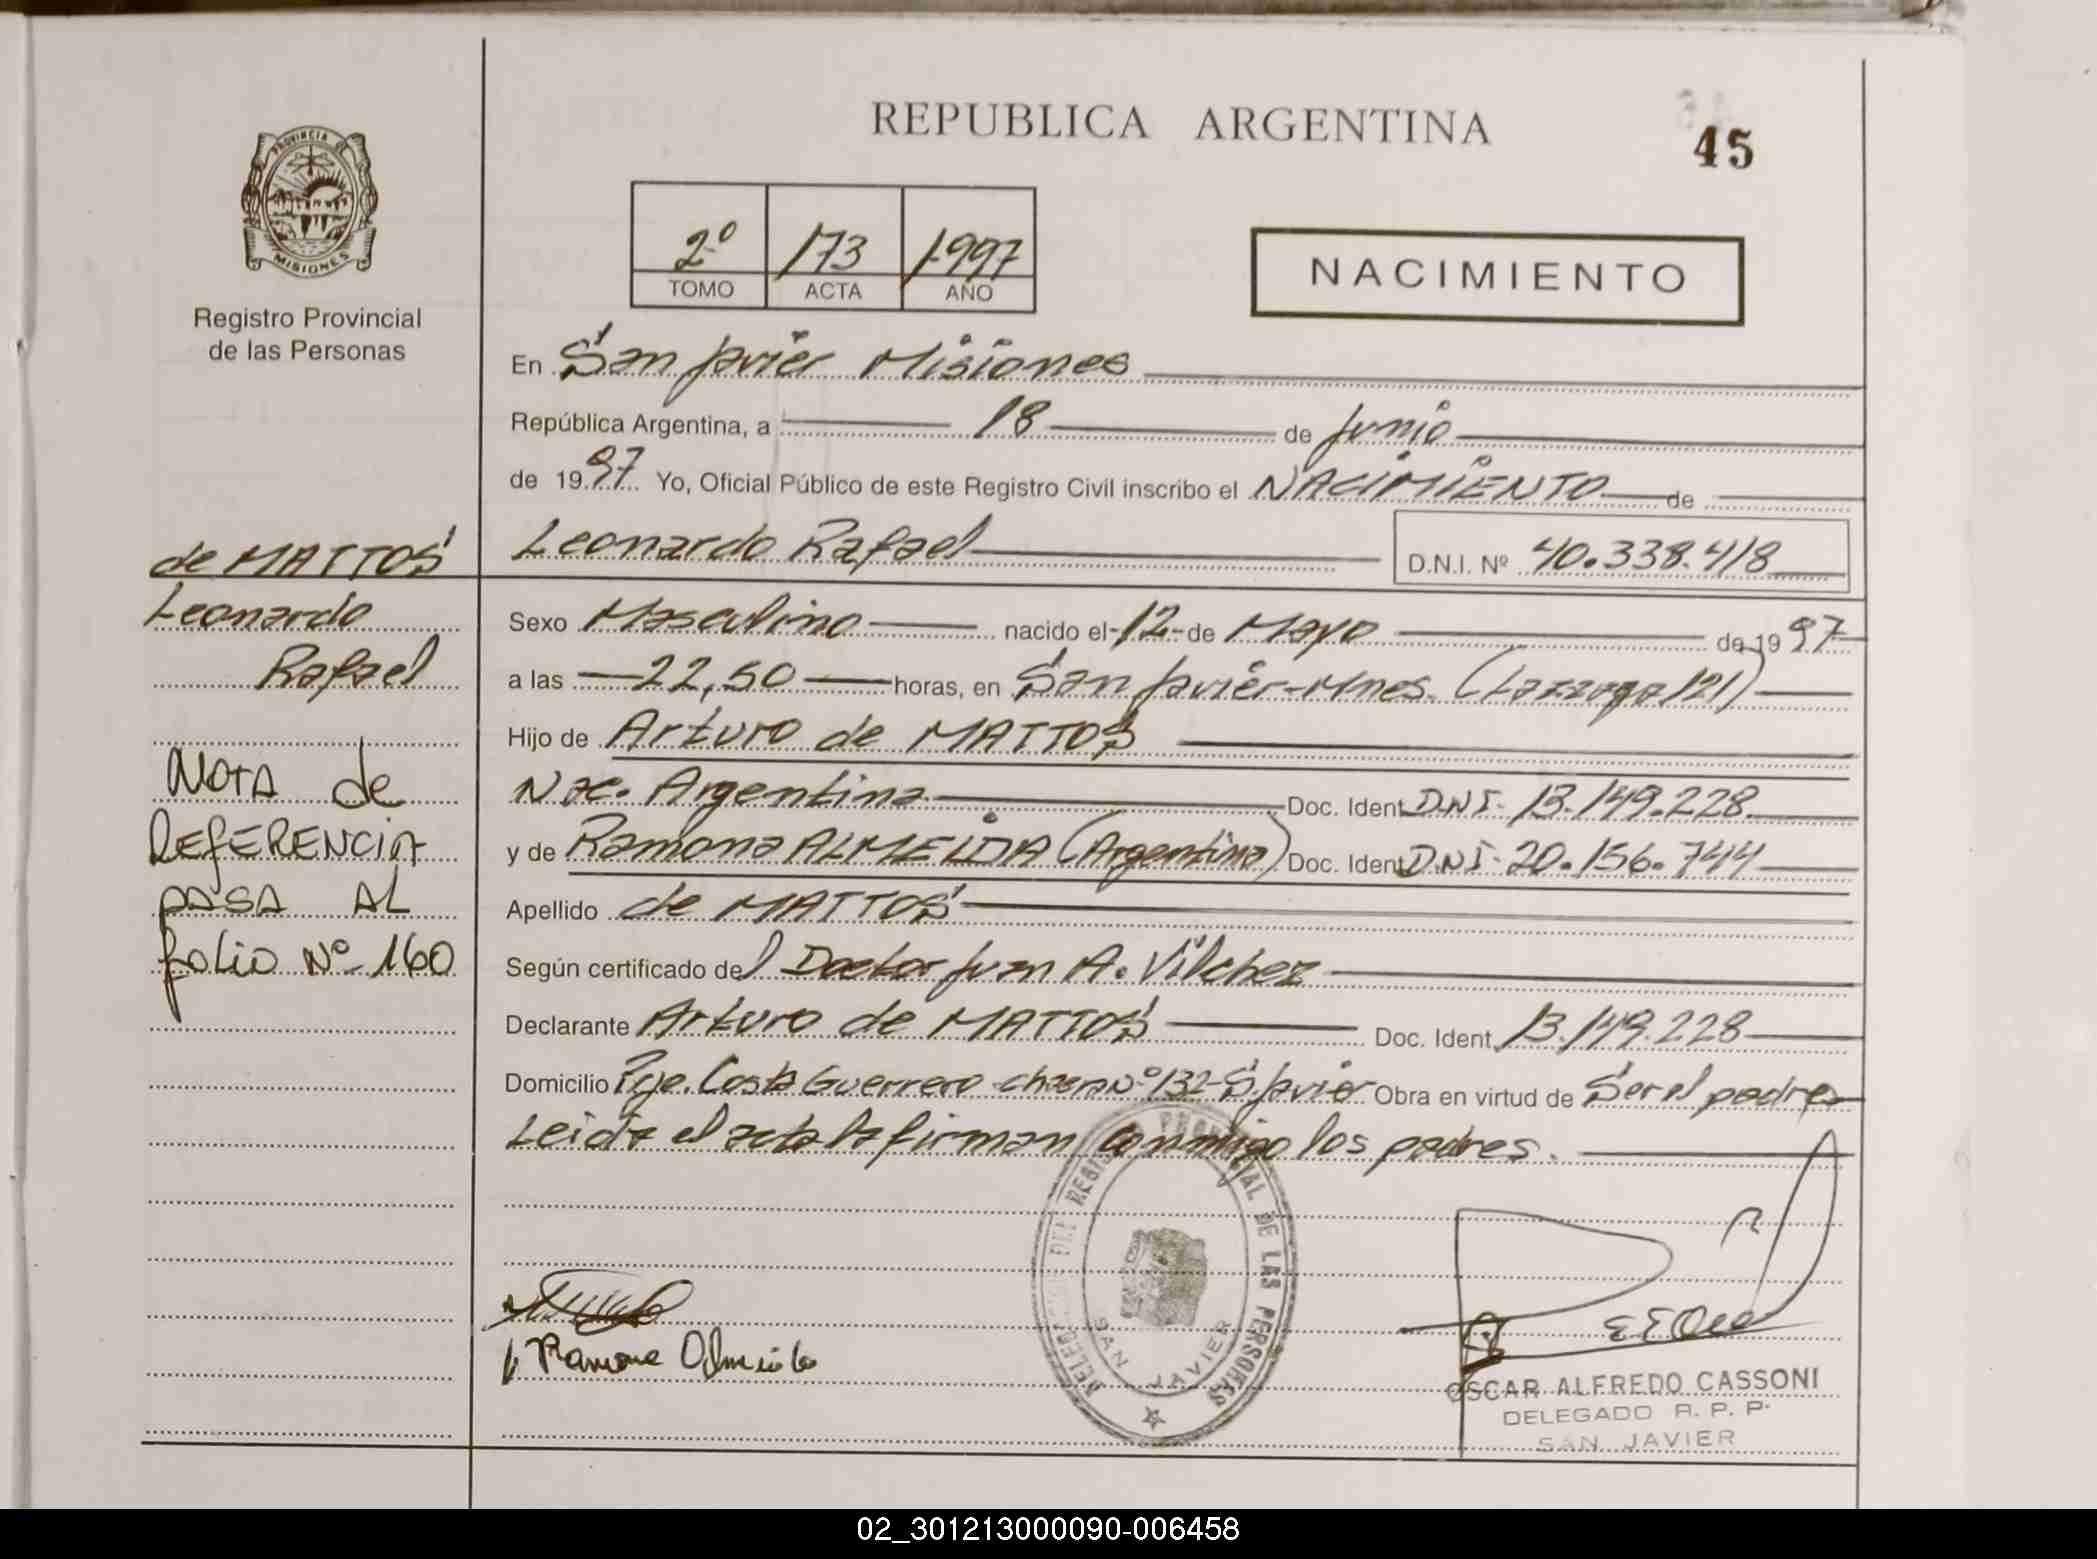 REPUBLICA ARGENTINA
45
PROVINCIA DE
MISIONES
Registro Provincial
de las Personas
2º 173 1997
TOMO ACTA AÑO
NACIMIENTO
En San Javier Misiones
República Argentina, a 18 de Junio
de 1997 Yo, Oficial Público de este Registro Civil inscribo el NACIMIENTO de
Leonardo Rafael D.N.I. Nº 40.338.418
Sexo Masculino nacido el 12 de Mayo de 1997
a las 22,50 horas, en San Javier-Mnes. (Lazzaga 121)
Hijo de Arturo de MATTOS
Nac. Argentina Doc. Ident D.N.I. 13.149.228
y de Ramona ALMEIDA (Argentina) Doc. Ident D.N.I. 20.156.744
Apellido de MATTOS
Según certificado del Doctor Juan A. Vilchez
Declarante Arturo de MATTOS Doc. Ident 13.149.228
Domicilio Pje. Costa Guerrero chacra Nº 132-S.Javier Obra en virtud de Ser el padre
Leida el acta la firman conmigo los padres.
de MATTOS
Leonardo
Rafael
NOTA de
REFERENCIA
PASA AL
folio Nº 160
DELEGACION DEL REGISTRO PROVINCIAL DE LAS PERSONAS
SAN JAVIER
Ramona Almeida
OSCAR ALFREDO CASSONI
DELEGADO R. P. P.
SAN JAVIER
02_301213000090-006458